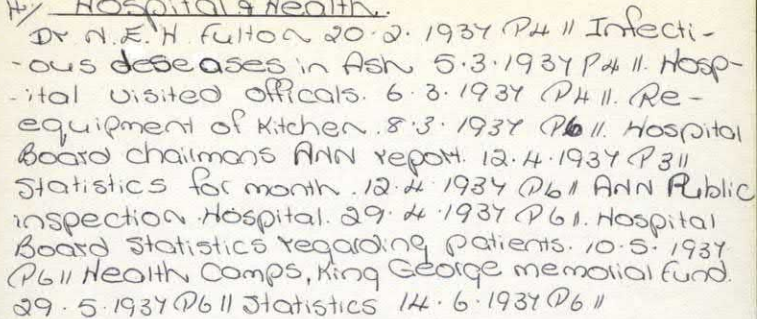 H/ Hospital & Health.
Dr N.E.H. Fulton 20.2.1937 P4 || Infecti-
-ous deseases in Ash 5.3.1937 P4 ||. Hosp-
-ital visited officals. 6.3.1937 P4 ||. Re-
equipment of Kitchen. 8.3.1937 P6 ||. Hospital
Board chairmans ANN report. 12.4.1937 P3 ||
Statistics for month. 12.4.1937 P6 || ANN Public
inspection Hospital. 29.4.1937 P6 ||. Hospital
Board Statistics regarding patients. 10.5.1937
P6 || Health Camps, King George memorial fund.
29.5.1937 P6 || Statistics 14.6.1937 P6 ||